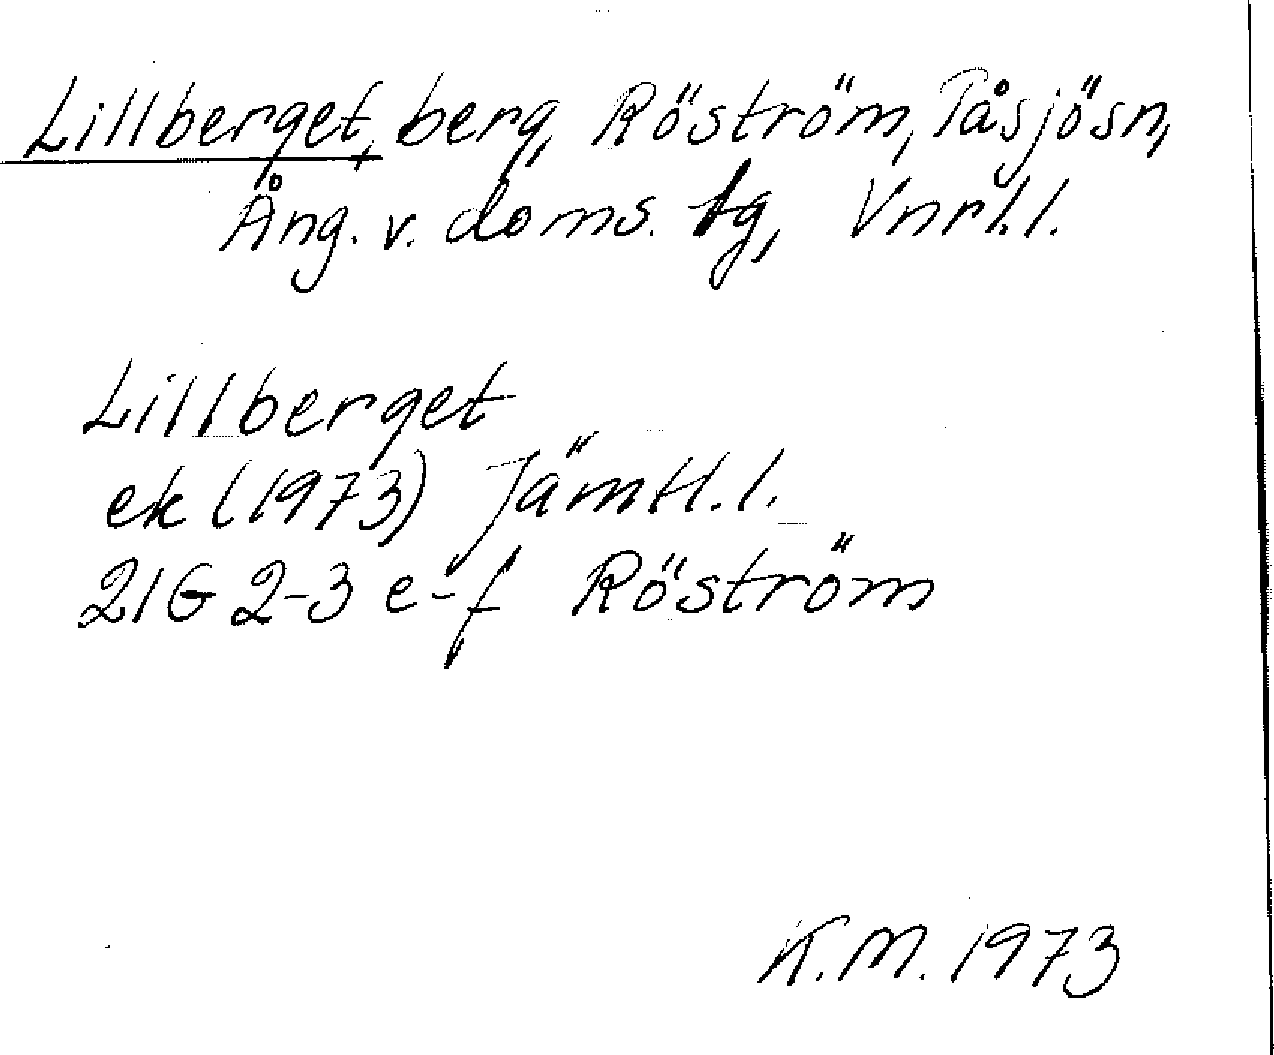 Lillberget, berg, Röström, Tåsjösn,
Ång. v. doms. tg, Vnrl. l.
Lillberget
ek (1973) Jämtl. l.
21G 2-3 e-f Röström
K.M. 1973